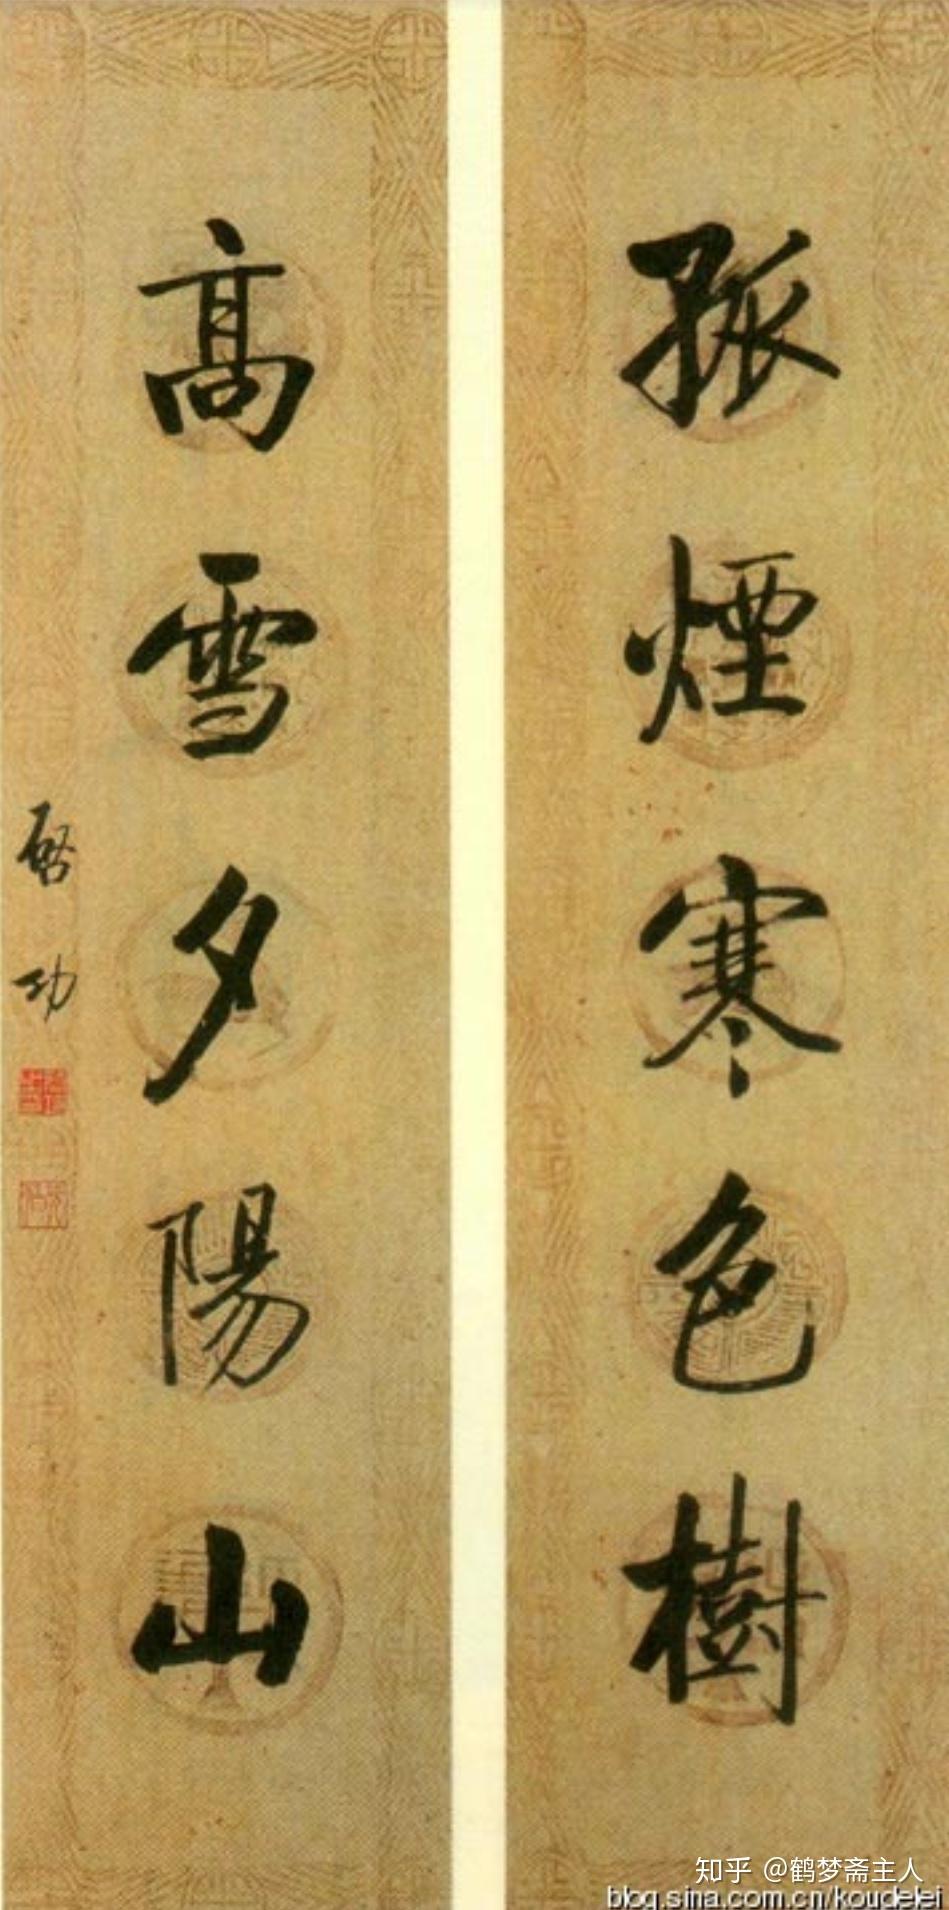 孤煙寒色樹
高雪夕陽山
啓功
知乎 @鹤梦斋主人
blog.sina.com.cn/koudelei